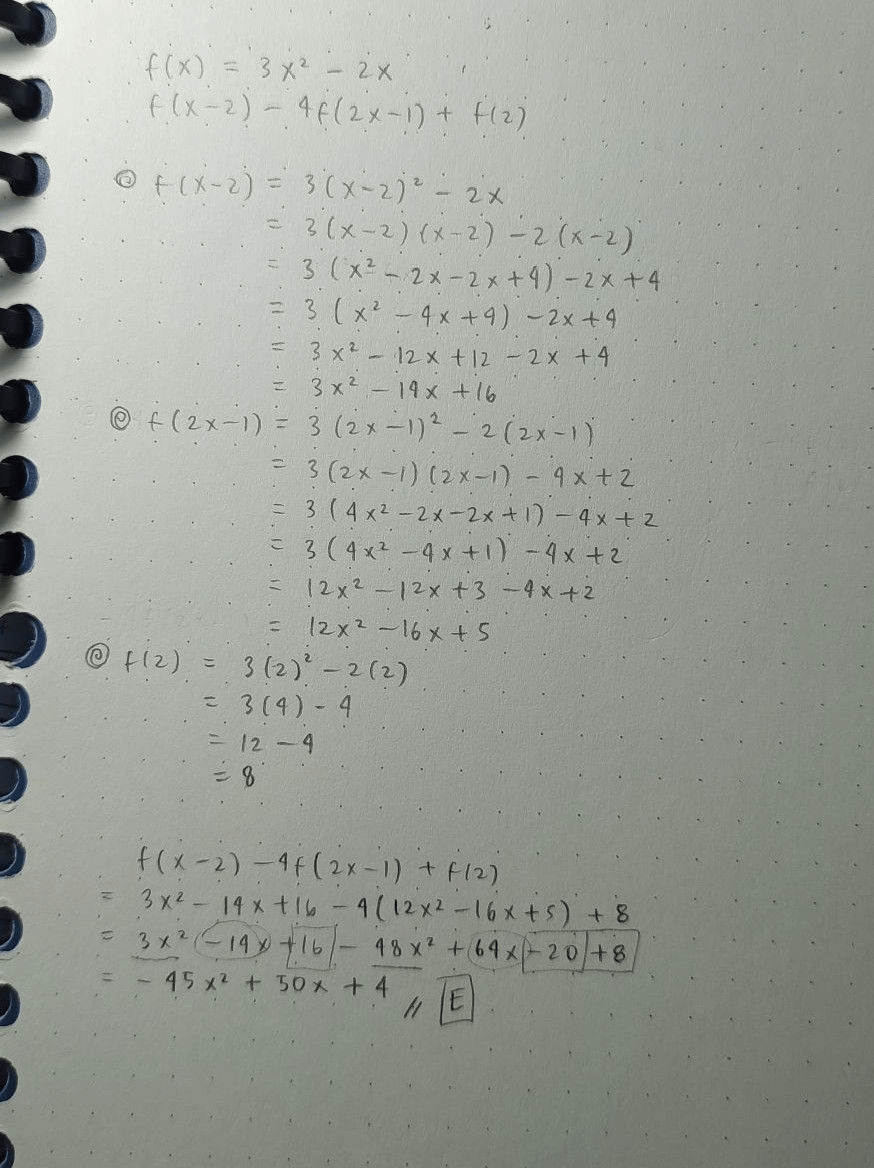 f(x) = 3x² - 2x
f(x-2) - 4f(2x-1) + f(2)
f(x-2) = 3(x-2)² - 2x
= 3(x-2)(x-2) - 2(x-2)
= 3(x² - 2x - 2x + 4) - 2x + 4
= 3(x² - 4x + 4) - 2x + 4
= 3x² - 12x + 12 - 2x + 4
= 3x² - 14x + 16
f(2x-1) = 3(2x-1)² - 2(2x-1)
= 3(2x-1)(2x-1) - 4x + 2
= 3(4x² - 2x - 2x + 1) - 4x + 2
= 3(4x² - 4x + 1) - 4x + 2
= 12x² - 12x + 3 - 4x + 2
= 12x² - 16x + 5
f(2) = 3(2)² - 2(2)
= 3(4) - 4
= 12 - 4
= 8
f(x-2) - 4f(2x-1) + f(2)
= 3x² - 14x + 16 - 4(12x² - 16x + 5) + 8
= 3x² - 14x + 16 - 48x² + 64x - 20 + 8
= - 45x² + 50x + 4 // E